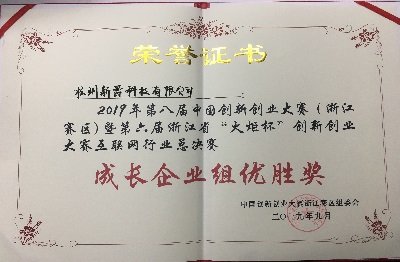 荣誉证书
杭州新爵科技有限公司
2019年第八届中国创新创业大赛（浙江
赛区）暨第六届浙江省“火炬杯”创新创业
大赛互联网行业总决赛
成长企业组优胜奖
中国创新创业大赛浙江赛区组委会
二〇一九年九月